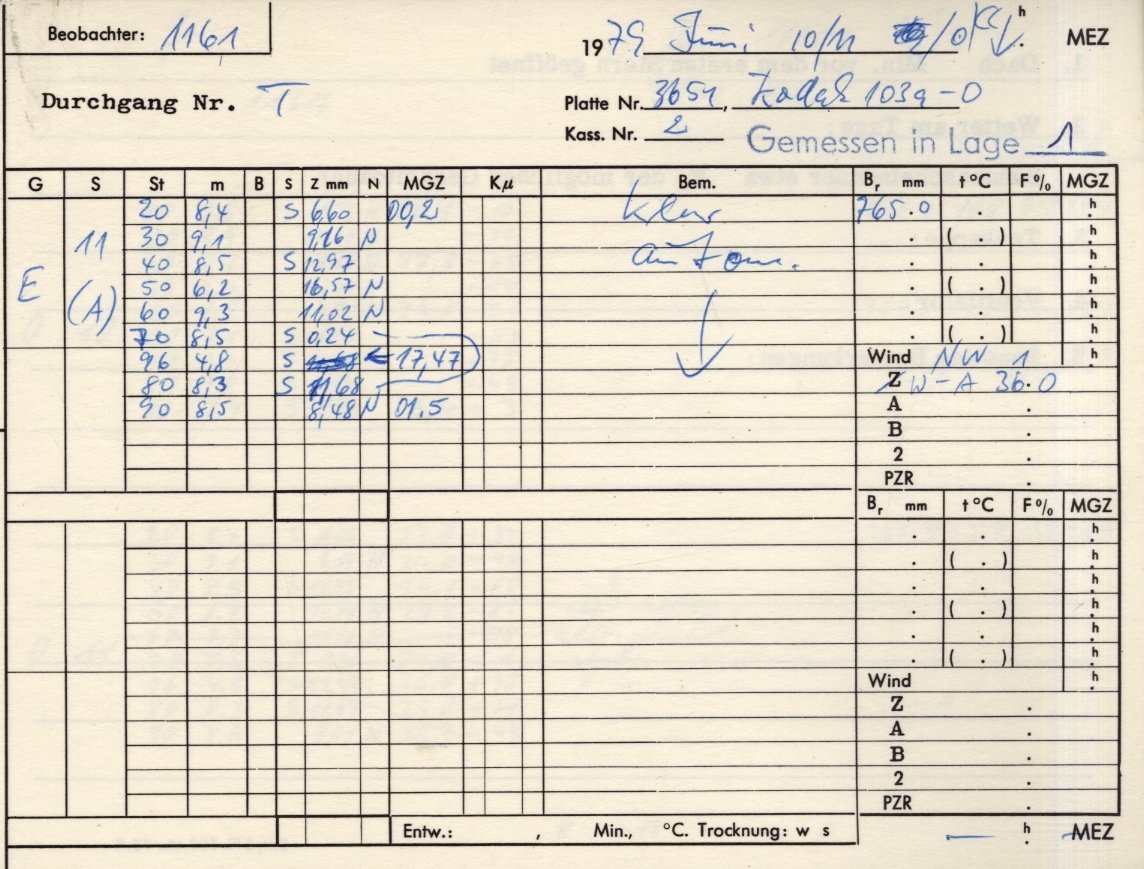 Beobachter: 1161
1979 Juni 10/11 /0 h MEZ
Durchgang Nr. T
Platte Nr. 3651, Kodak 103a-O
Kass. Nr. 2
Gemessen in Lage 1
G S St m B S Z mm N MGZ Kμ Bem. Br mm t °C F % MGZ
20 8,4 S 6,60 00,2 klar 765.0 h
11 30 9,1 9,16 N ( . ) h
40 8,5 S 12,97 autom. h
E 50 6,2 16,57 N ( . ) h
(A) 60 9,3 11,02 N h
70 8,5 S 0,24 ( . ) h
96 4,8 S ← 17,47 Wind NW 1 h
80 8,3 S 11,68 Z W-A 36.0
90 8,5 8,48 N 01.5 A
B
2
PZR
Br mm t °C F % MGZ
h
( . ) h
h
( . ) h
h
( . ) h
Wind h
Z
A
B
2
PZR
Entw.: , Min., °C. Trocknung: w s — h MEZ